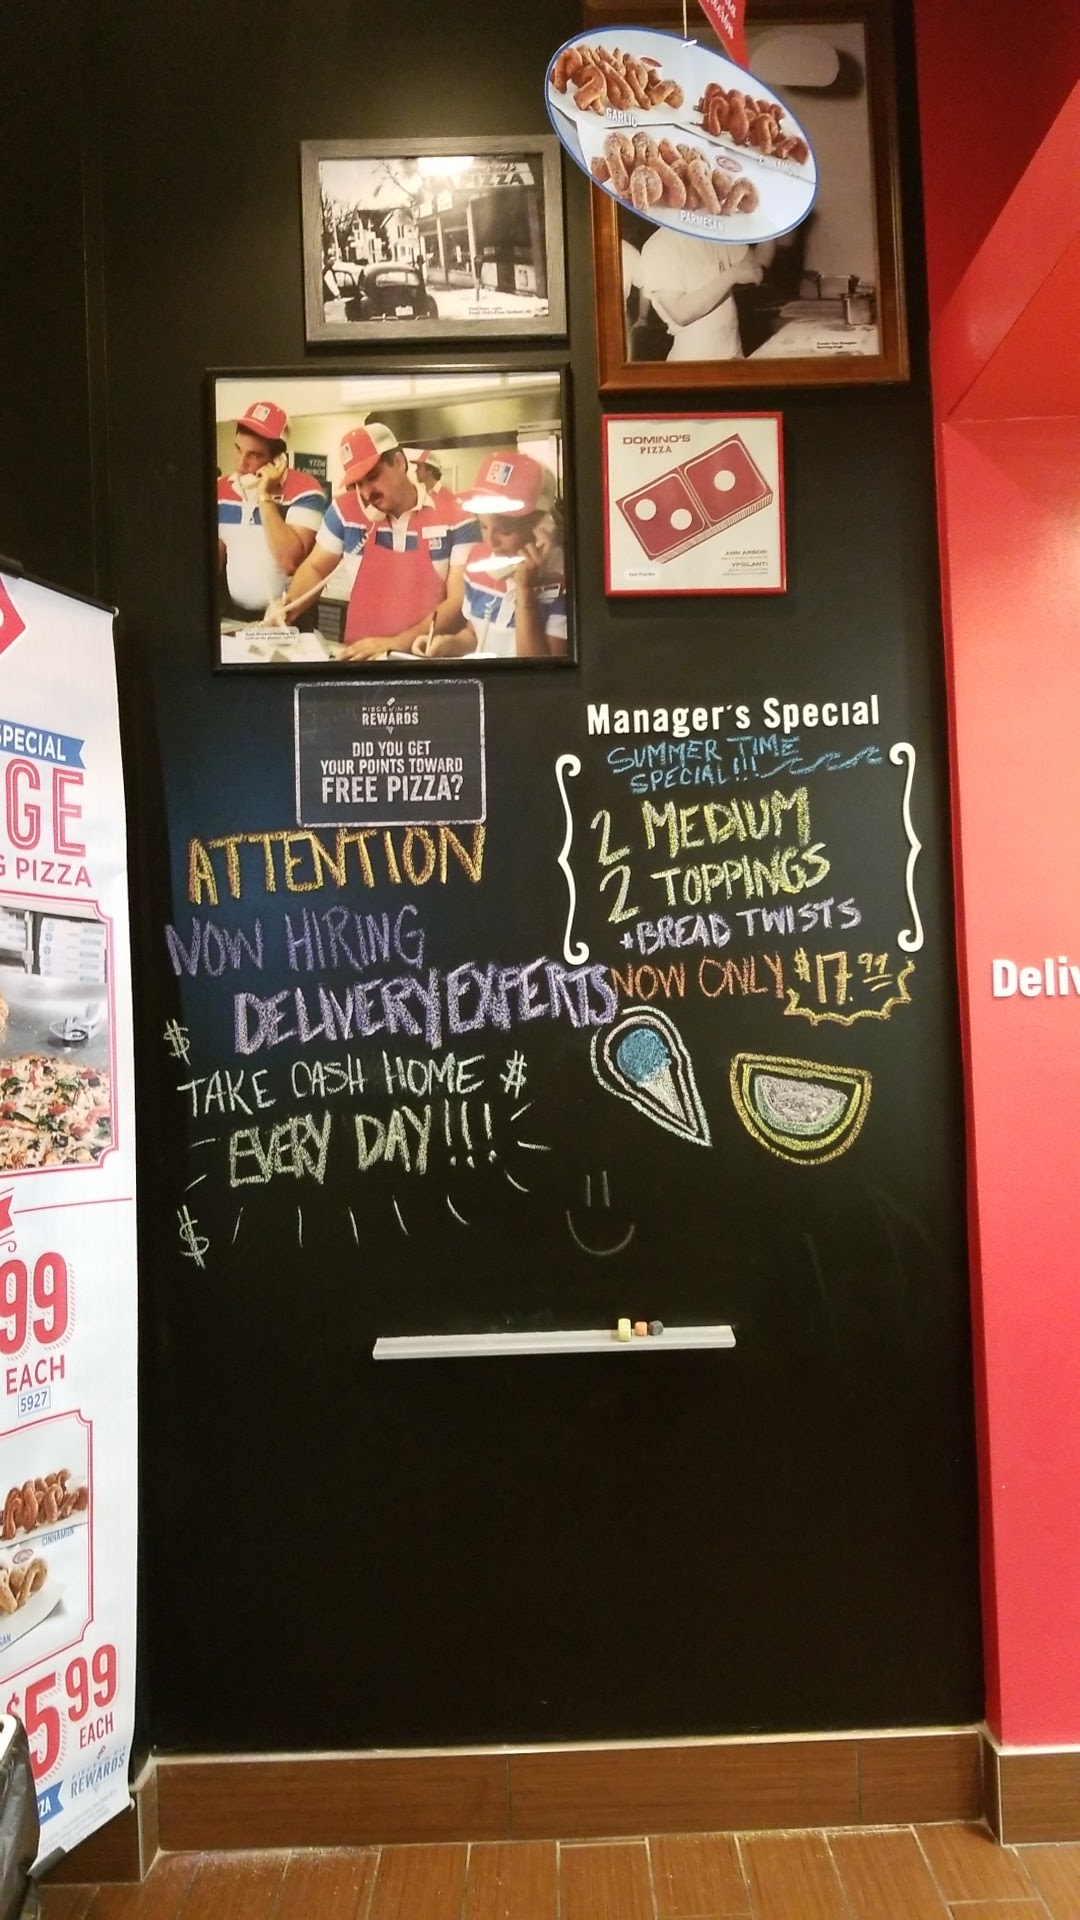 GARLIC
PARMESAN
PIZZA
DOMINO'S
PIZZA
ANN ARBOR
YPSILANTI
PIECE of the PIE
REWARDS
DID YOU GET
YOUR POINTS TOWARD
FREE PIZZA?
ATTENTION
NOW HIRING
DELIVERY EXPERTS
$
TAKE CASH HOME $
EVERY DAY!!!
$
Manager's Special
SUMMER TIME
SPECIAL!!!
2 MEDIUM
2 TOPPINGS
+BREAD TWISTS
NOW ONLY $17.99
SPECIAL
GE
G PIZZA
99
EACH
5927
CINNAMON
SAN
$5.99
EACH
PIECE of the PIE
REWARDS
ZZA
Deliv